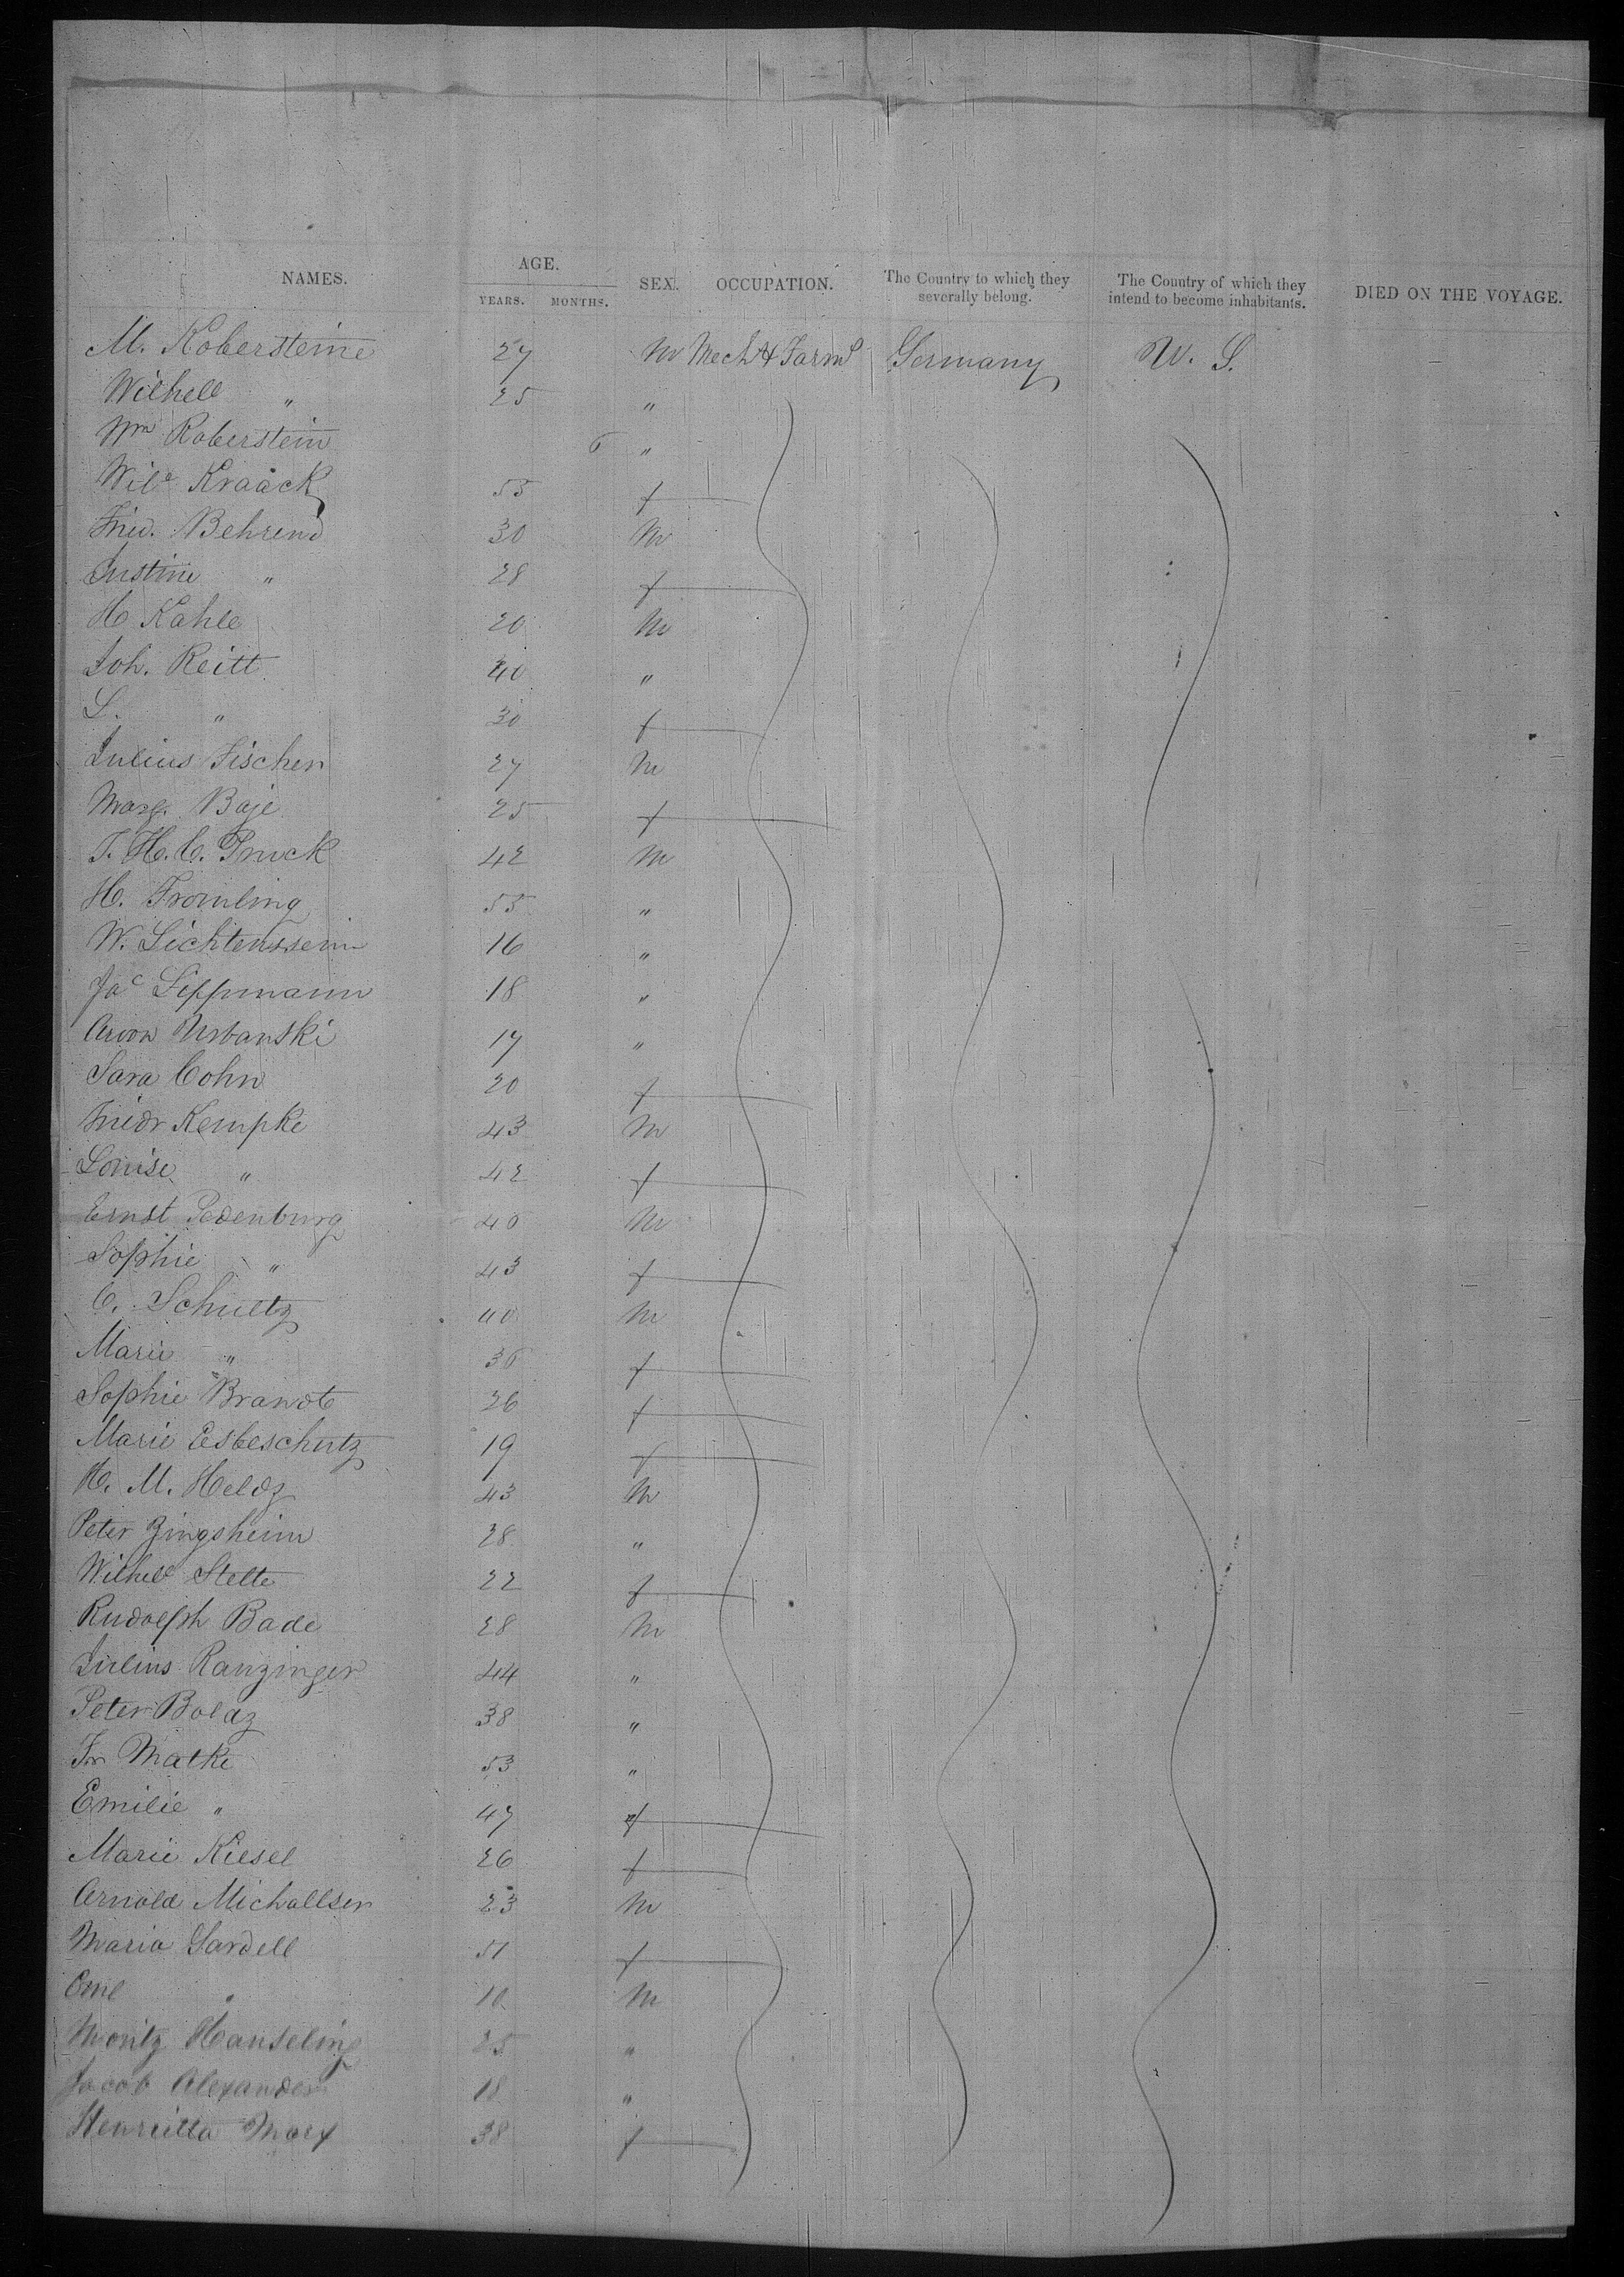 NAMES. AGE. SEX. OCCUPATION. The Country to which they severally belong. The Country of which they intend to become inhabitants. DIED ON THE VOYAGE.
YEARS. MONTHS.
M. Kobersteine 27 M Mech & Farms Germany U. S.
Wilhell " 25 "
Wm Koberstein 6 "
Wile Kraack 55 f
Fried. Behrend 30 M
Justine " 28 f
H Kahle 20 M
Joh. Reitt 40 "
L. " 30 f
Julius Fischer 27 M
Marg. Boje 25 f
J. H. C. Pruck 42 M
H. Fromling 55 "
W. Lichtenstein 16 "
Jac Lippmann 18 "
Aron Urbanski 17 "
Sara Cohn 20 f
Friedr Kempke 43 M
Louise " 42 f
Ernst Pedenburg 40 M
Sophie " 43 f
C. Schultz 40 M
Marie " 36 f
Sophie Brandt 26 f
Marie Esbeschutz 19 f
H. M. Heldz 43 M
Peter Zingsheim 28 "
Wilhe Stelte 22 f
Rudolph Bade 28 M
Julius Ranzinger 44 "
Peter Bolaz 38 "
Fr Matke 53 "
Emilie " 47 f
Marie Kiesel 26 f
Arnold Michallsen 23 M
Maria Sardell 51 f
Eml " 10 M
Moritz Hanseling 25 "
Jacob Alexander 18 "
Henrietta Marx 38 f